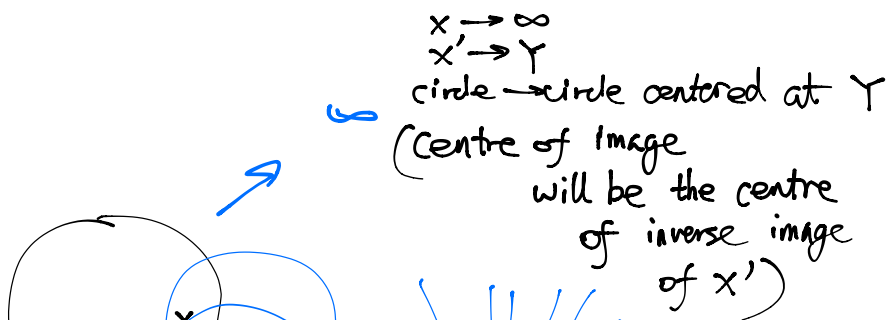 x → ∞
x' → Y
circle → circle centered at Y
∞
(centre of image
will be the centre
of inverse image
of x')
x